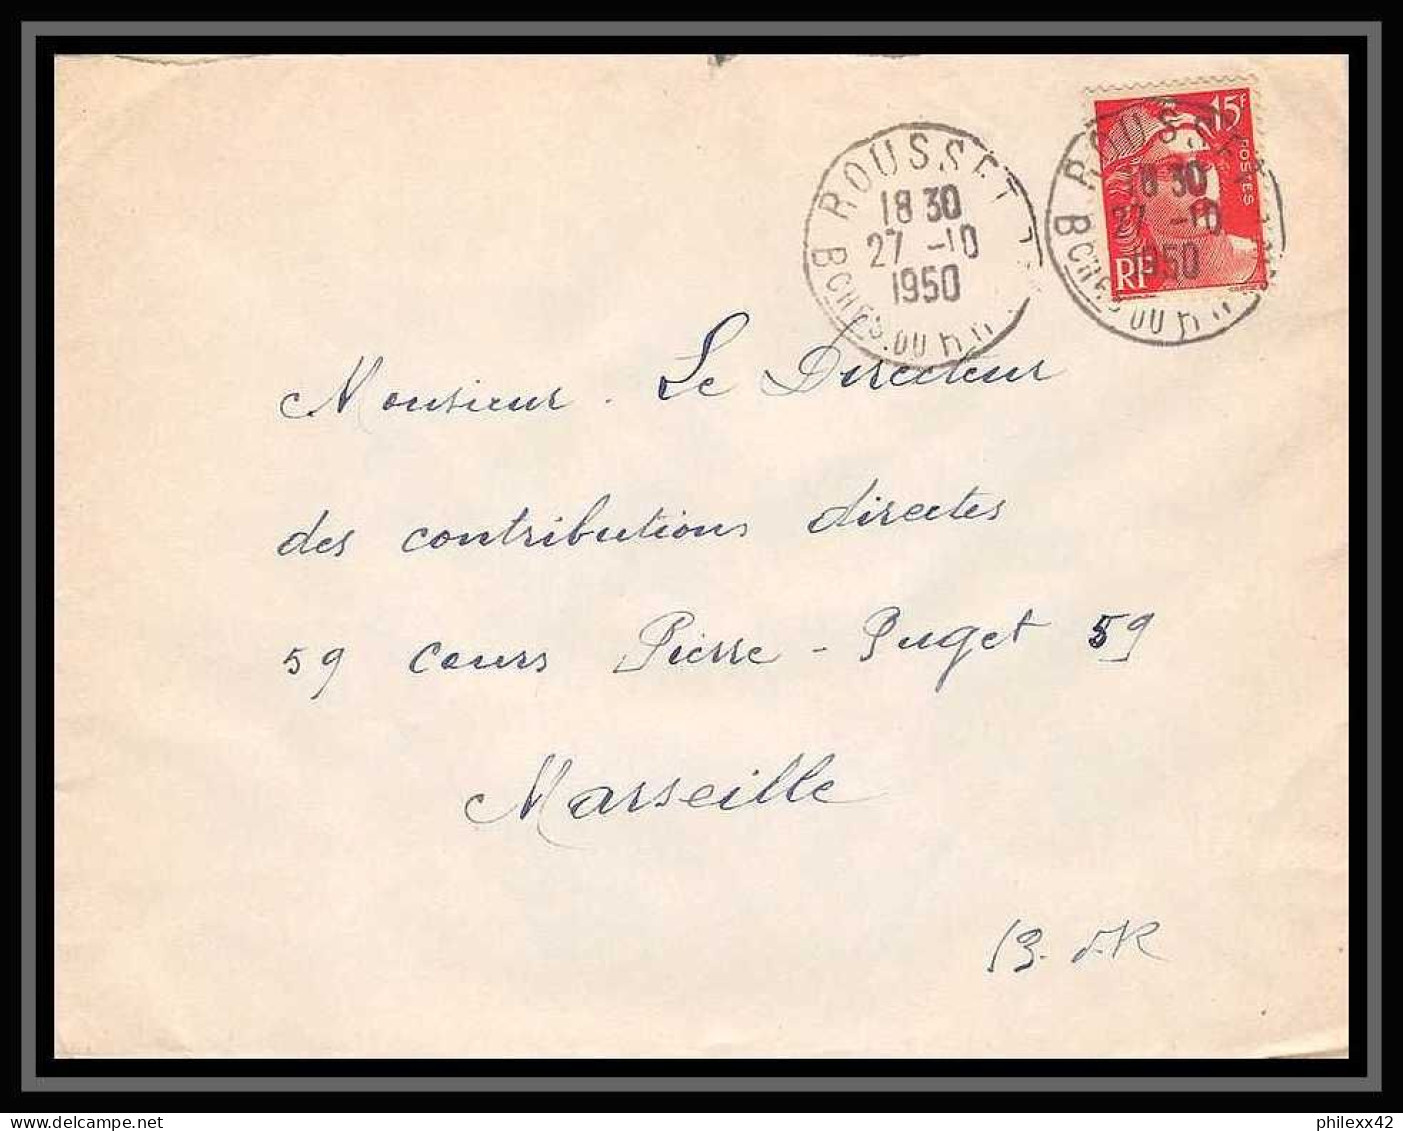 ROUSSET
18 30
27 -10
1950
BCHES.DU RH
15F
POSTES
RF
ROUSSET
18 30
27 -10
1950
BCHES DU RH
Monsieur. Le Directeur
des contributions directes
59 cours Pierre-Puget 59
Marseille
B.d.R
delcampe.net
philexx42